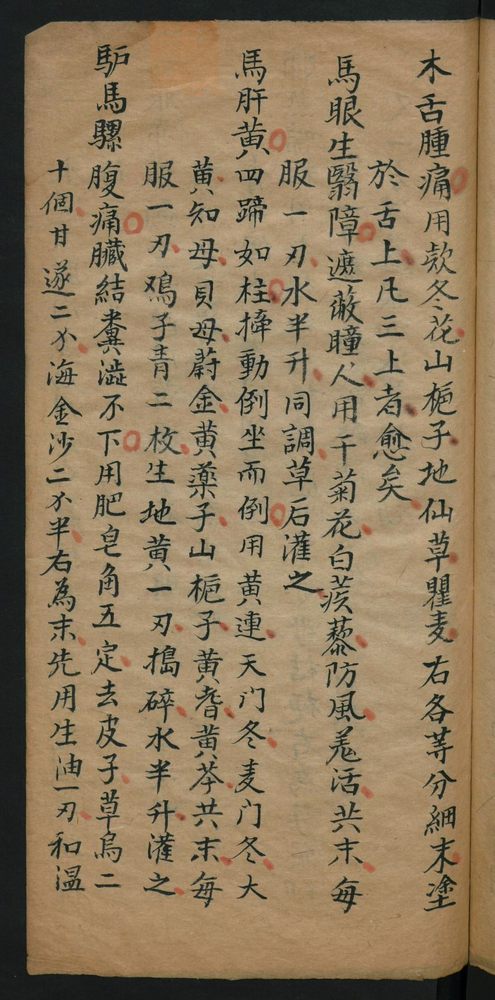 木舌腫痛用款冬花山梔子地仙草瞿麦右各等分細末塗
於舌上凡三上者愈矣
馬眼生翳障遮蔽瞳人用干菊花白蒺藜防風羗活共末每
服一刃水半升同調草后灌之
馬肝黄四蹄如柱摔動倒坐而倒用黄連天门冬麦门冬大
黄知母貝母蔚金黄藥子山梔子黄耆黄芩共末每
服一刃鳮子青二枚生地黄一刃搗碎水半升灌之
馿馬騾腹痛臟結糞澁不下用肥皂角五定去皮子草烏二
十個甘遂二分海金沙二分半右為末先用生油一刃和温